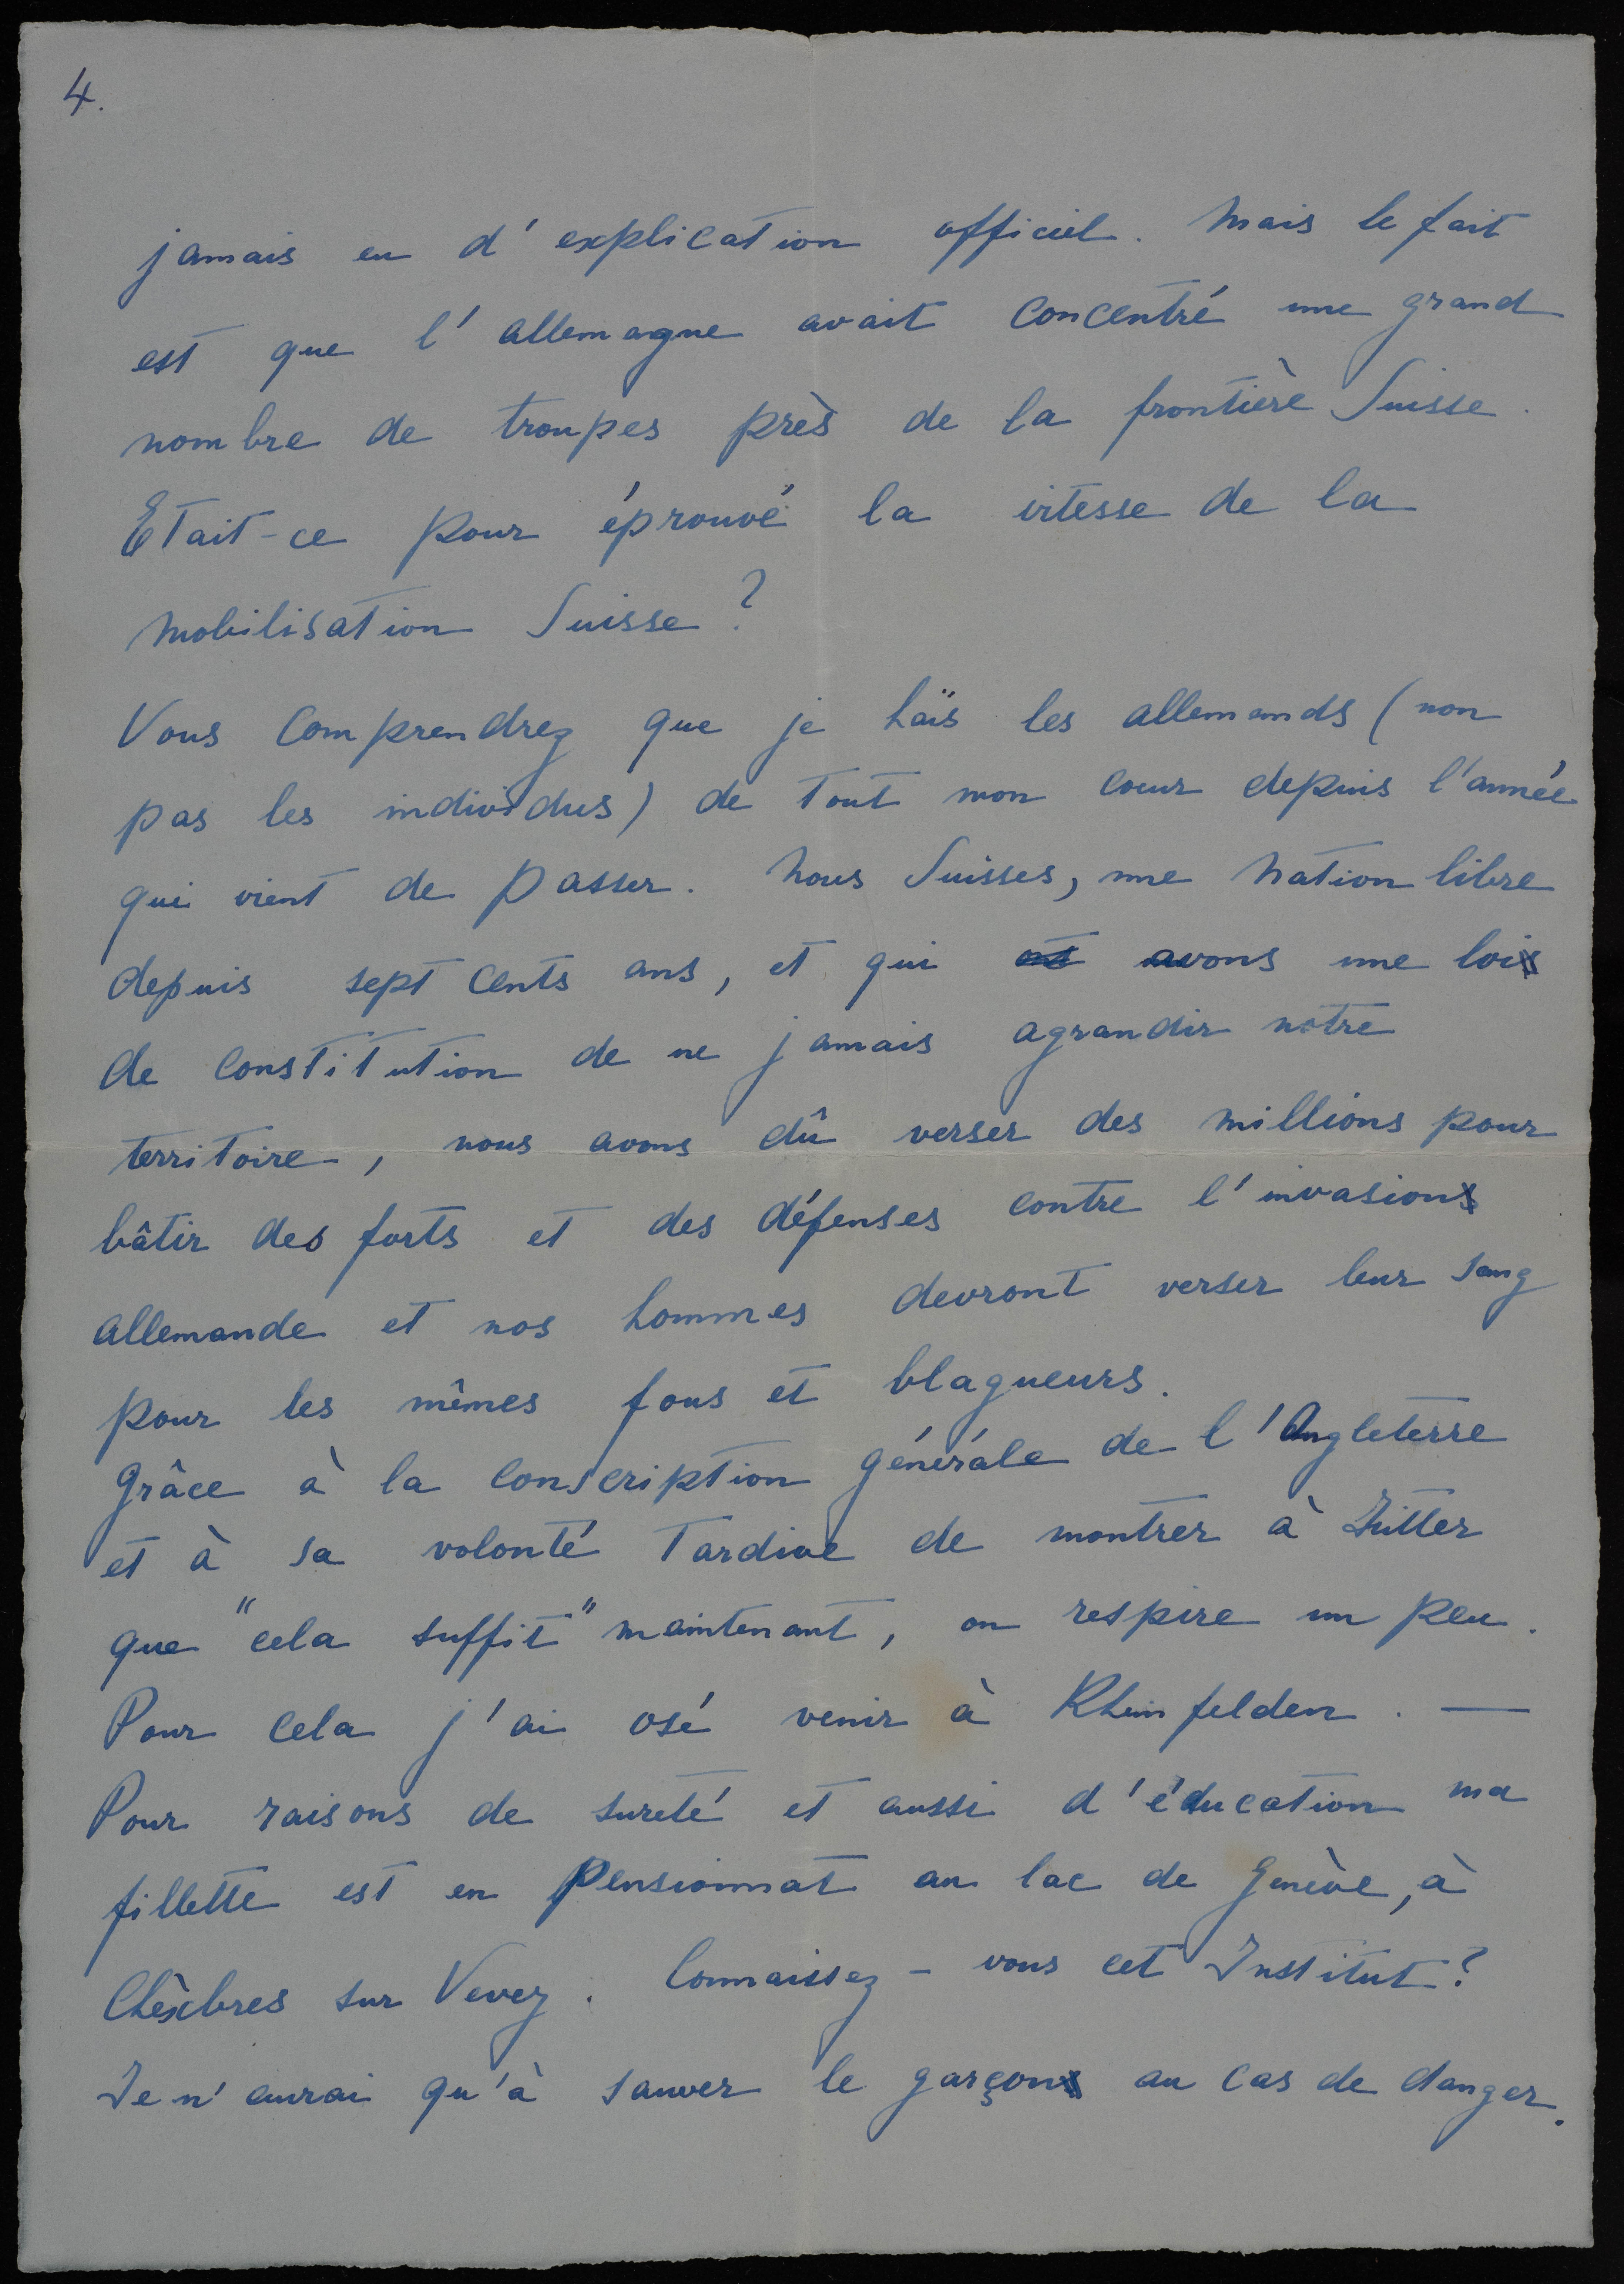 4.
jamais eu d'explication officiel. Mais le fait
est que l'allemagne avait concentré une grand
nombre de troupes près de la frontière Suisse.
Etait-ce pour éprouvé la vitesse de la
mobilisation Suisse?
Vous comprendrez que je haïs les allemands (non
pas les individus) de tout mon coeur depuis l'année
qui vient de passer. Nous Suisses, une Nation libre
depuis sept cents ans, et qui avons une loi
de constitution de ne jamais agrandir notre
territoire, nous avons dû verser des millions pour
bâtir des forts et des défenses contre l'invasion
allemande et nos hommes devront verser leur sang
pour les mêmes fous et blagueurs.
Grâce à la conscription générale de l'Angleterre
et à sa volonté tardive de montrer à Hitler
que "cela suffit" maintenant, on respire un peu.
Pour cela j'ai osé venir à Rheinfelden. —
Pour raisons de sureté et aussi d'éducation ma
fillette est en Pensionnat au lac de Genève, à
Chèxbres sur Vevey. Connaissez-vous cet Institut?
Je n'aurai qu'à sauver le garçon au cas de danger.